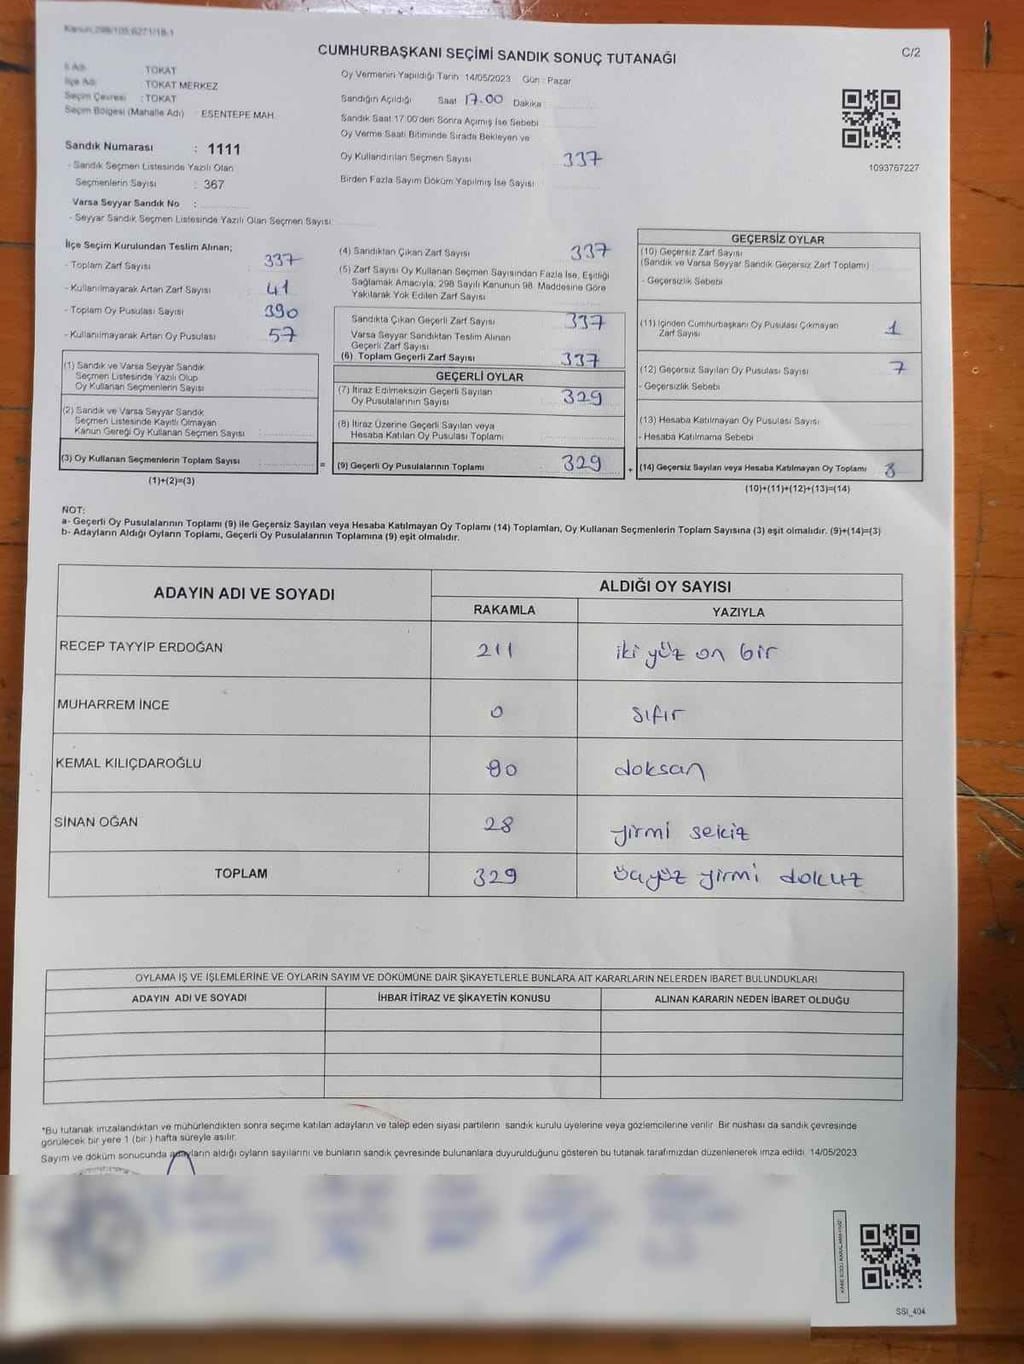 CUMHURBAŞKANI SEÇİMİ SANDIK SONUÇ TUTANAĞI
C/2
İl Adı : TOKAT
İlçe Adı : TOKAT MERKEZ
Seçim Çevresi : TOKAT
Seçim Bölgesi (Mahalle Adı) : ESENTEPE MAH.
Sandık Numarası : 1111
- Sandık Seçmen Listesinde Yazılı Olan
Seçmenlerin Sayısı : 367
Varsa Seyyar Sandık No :
- Seyyar Sandık Seçmen Listesinde Yazılı Olan Seçmen Sayısı:
Oy Vermenin Yapıldığı Tarih 14/05/2023 Gün : Pazar
Sandığın Açıldığı Saat 17.00 Dakika
Sandık Saat 17.00'den Sonra Açımış İse Sebebi
Oy Verme Saati Bitiminde Sırada Bekleyen ve
Oy Kullandırılan Seçmen Sayısı 337
Birden Fazla Sayım Döküm Yapılmış İse Sayısı
1093767227
İlçe Seçim Kurulundan Teslim Alınan;
- Toplam Zarf Sayısı 337
- Kullanılmayarak Artan Zarf Sayısı 41
- Toplam Oy Pusulası Sayısı 390
- Kullanılmayarak Artan Oy Pusulası 57
(1) Sandık ve Varsa Seyyar Sandık
Seçmen Listesinde Yazılı Olup
Oy Kullanan Seçmenlerin Sayısı
(2) Sandık ve Varsa Seyyar Sandık
Seçmen Listesinde Kayıtlı Olmayan
Kanun Gereği Oy Kullanan Seçmen Sayısı
(3) Oy Kullanan Seçmenlerin Toplam Sayısı =
(1)+(2)=(3)
(4) Sandıktan Çıkan Zarf Sayısı 337
(5) Zarf Sayısı Oy Kullanan Seçmen Sayısından Fazla İse, Eşitliği
Sağlamak Amacıyla; 298 Sayılı Kanunun 98. Maddesine Göre
Yakılarak Yok Edilen Zarf Sayısı
Sandıkta Çıkan Geçerli Zarf Sayısı 337
Varsa Seyyar Sandıktan Teslim Alınan
Geçerli Zarf Sayısı
(6) Toplam Geçerli Zarf Sayısı 337
GEÇERLİ OYLAR
(7) İtiraz Edilmeksizin Geçerli Sayılan
Oy Pusulalarının Sayısı 329
(8) İtiraz Üzerine Geçerli Sayılan veya
Hesaba Katılan Oy Pusulası Toplamı
(9) Geçerli Oy Pusulalarının Toplamı 329 +
GEÇERSİZ OYLAR
(10) Geçersiz Zarf Sayısı
(Sandık ve Varsa Seyyar Sandık Geçersiz Zarf Toplamı)
- Geçersizlik Sebebi
(11) İçinden Cumhurbaşkanı Oy Pusulası Çıkmayan
Zarf Sayısı 1
(12) Geçersiz Sayılan Oy Pusulası Sayısı 7
- Geçersizlik Sebebi
(13) Hesaba Katılmayan Oy Pusulası Sayısı
- Hesaba Katılmama Sebebi
(14) Geçersiz Sayılan veya Hesaba Katılmayan Oy Toplamı 8
(10)+(11)+(12)+(13)=(14)
NOT:
a- Geçerli Oy Pusulalarının Toplamı (9) ile Geçersiz Sayılan veya Hesaba Katılmayan Oy Toplamı (14) Toplamları, Oy Kullanan Seçmenlerin Toplam Sayısına (3) eşit olmalıdır. (9)+(14)=(3)
b- Adayların Aldığı Oyların Toplamı, Geçerli Oy Pusulalarının Toplamına (9) eşit olmalıdır.
ADAYIN ADI VE SOYADI
ALDIĞI OY SAYISI
RAKAMLA YAZIYLA
RECEP TAYYİP ERDOĞAN 211 iki yüz on bir
MUHARREM İNCE 0 sıfır
KEMAL KILIÇDAROĞLU 90 doksan
SİNAN OĞAN 28 yirmi sekiz
TOPLAM 329 üçyüz yirmi dokuz
OYLAMA İŞ VE İŞLEMLERİNE VE OYLARIN SAYIM VE DÖKÜMÜNE DAİR ŞİKAYETLERLE BUNLARA AİT KARARLARIN NELERDEN İBARET BULUNDUKLARI
ADAYIN ADI VE SOYADI İHBAR İTİRAZ VE ŞİKAYETİN KONUSU ALINAN KARARIN NEDEN İBARET OLDUĞU
*Bu tutanak imzalandıktan ve mühürlendikten sonra seçime katılan adayların ve talep eden siyasi partilerin sandık kurulu üyelerine veya gözlemcilerine verilir. Bir nüshası da sandık çevresinde
görülecek bir yere 1 (bir ) hafta süreyle asılır.
Sayım ve döküm sonucunda adayların aldığı oyların sayılarını ve bunların sandık çevresinde bulunanlara duyurulduğunu gösteren bu tutanak tarafımızdan düzenlenerek imza edildi. 14/05/2023
SSI_404